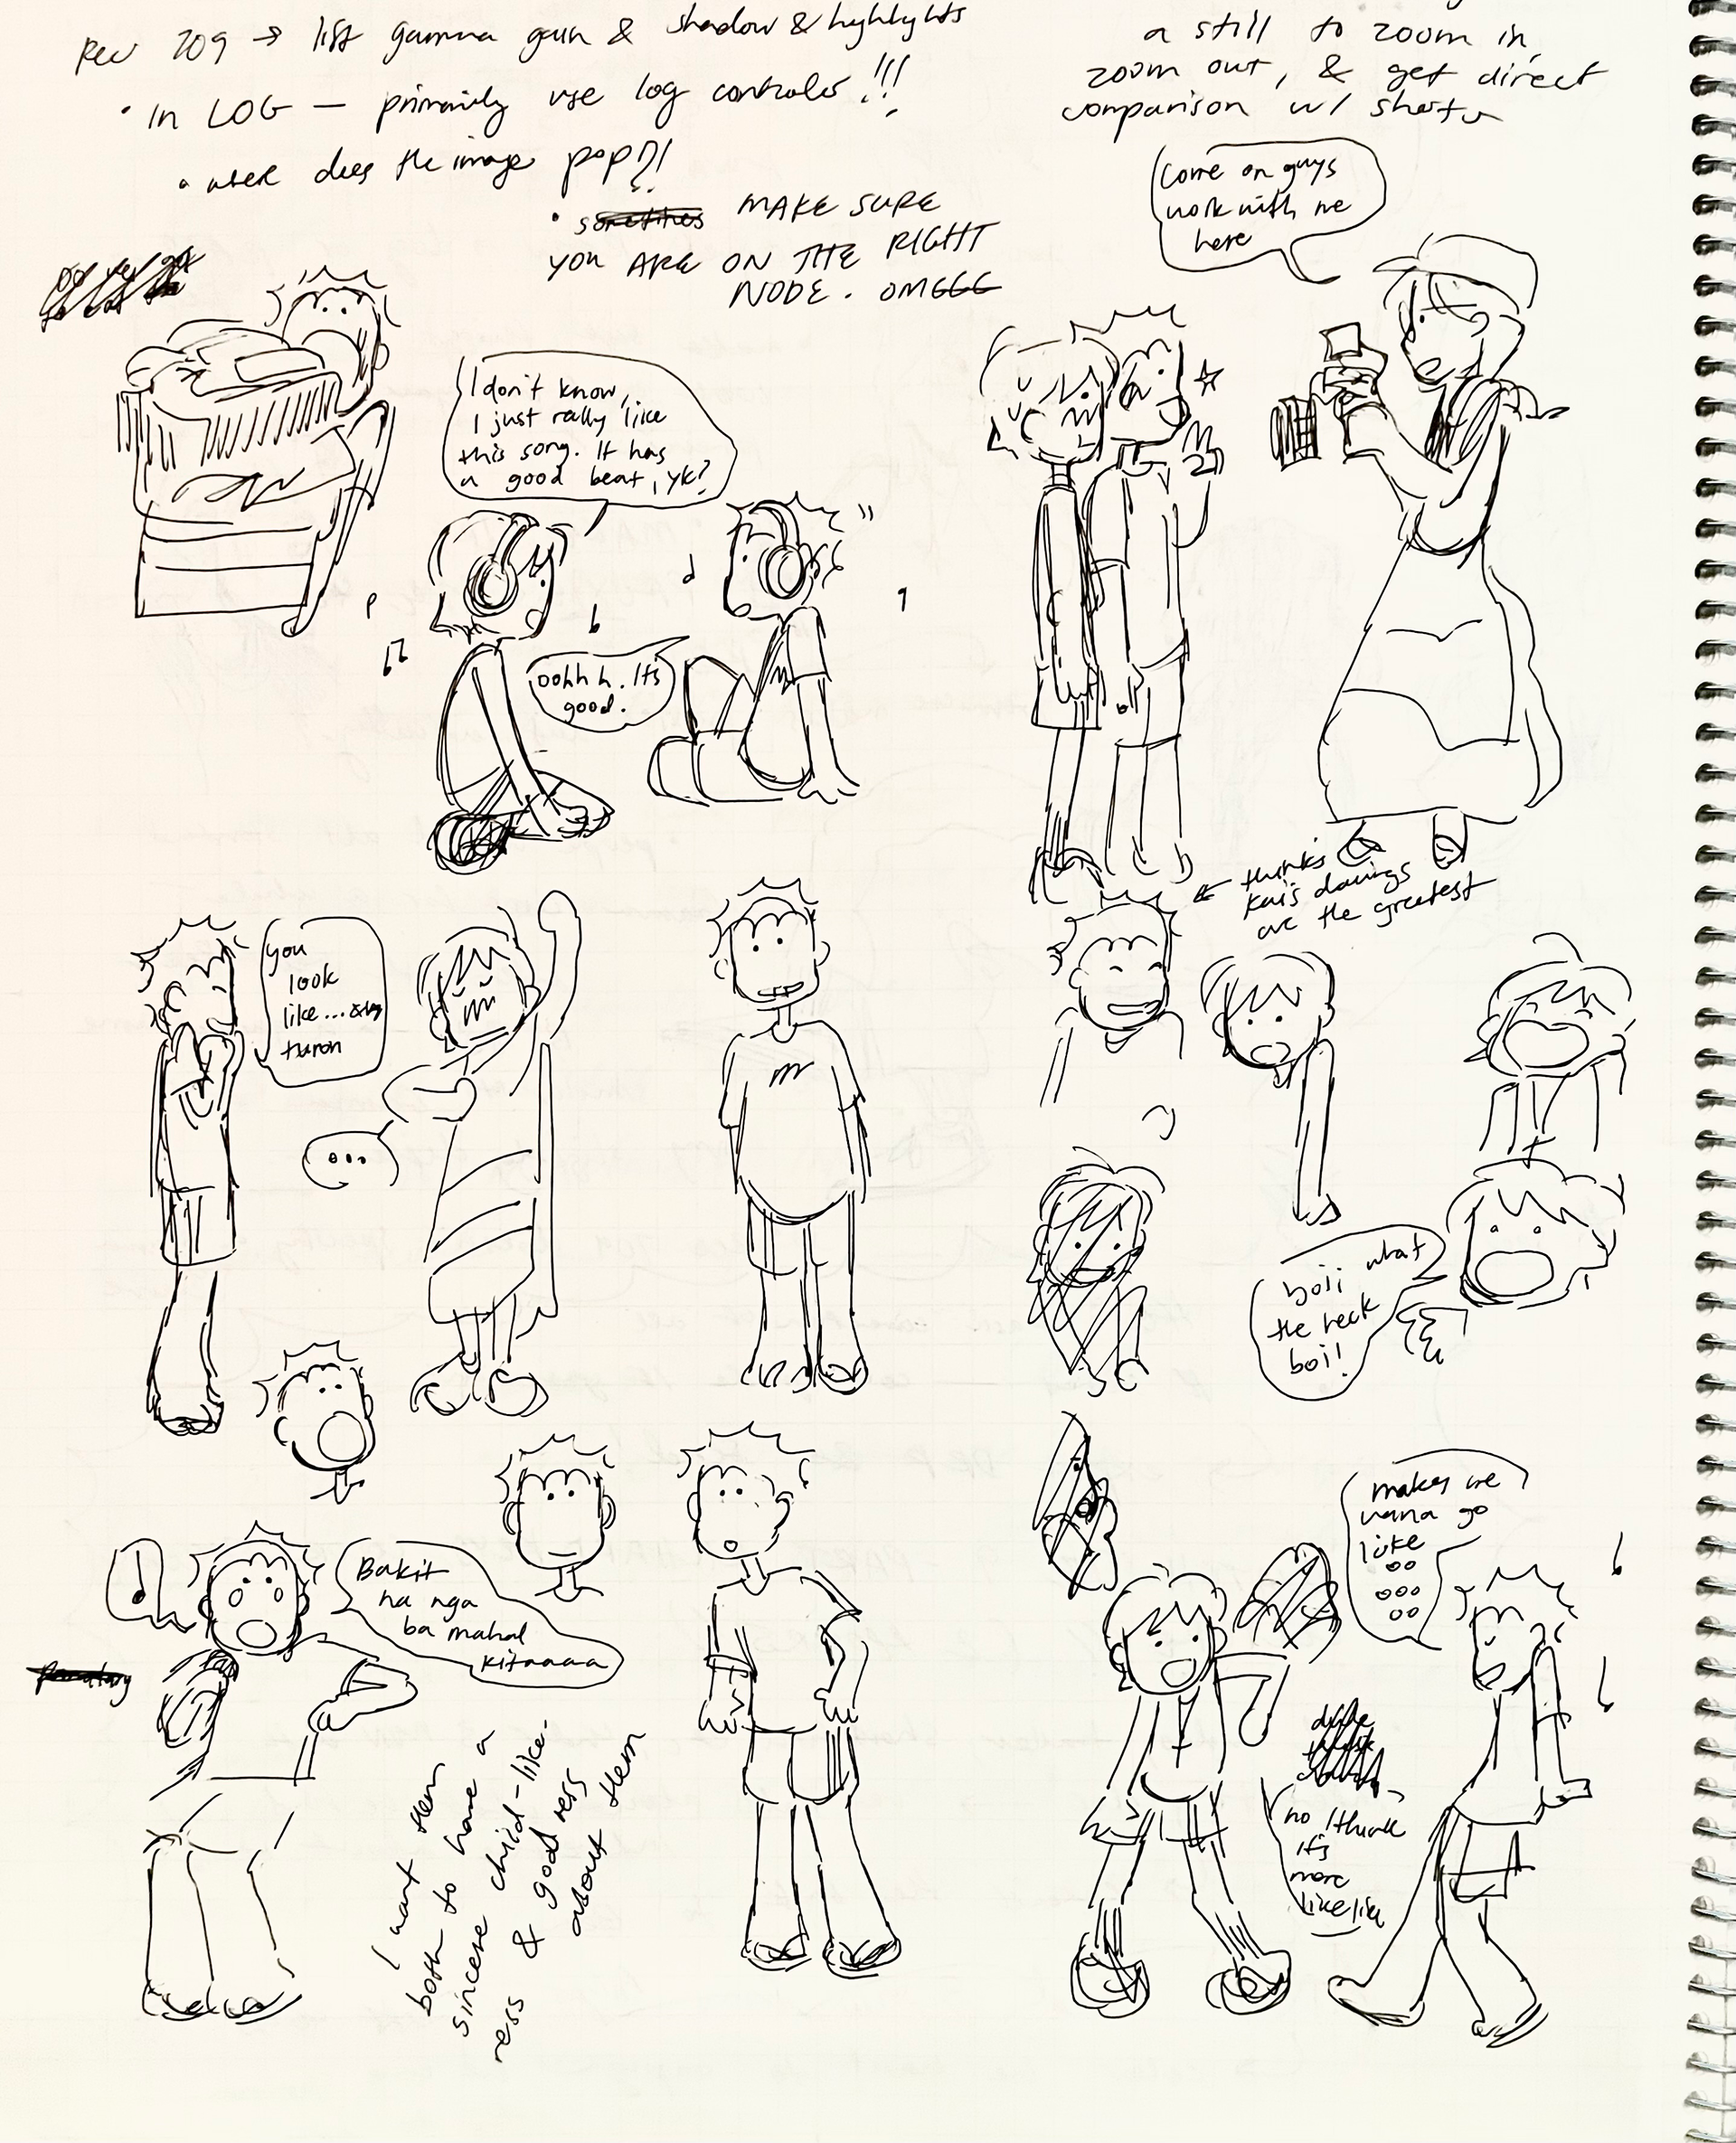 Rec 709 → lift gamma gain & shadow & highlights
• In LOG — primarily use log controls!!!
• where does the image pop?!
• sometimes MAKE SURE
YOU ARE ON THE RIGHT
NODE. OMGGG
a still to zoom in,
zoom out, & get direct
comparison w/ shots
Come on guys
work with me
here
I don't know,
I just really like
this song. It has
a good beat, yk?
oohh h. Its
good.
← thinks
kai's drawings
are the greatest
you
look
like...
turon
...
boii what
the heck
boi!
makes me
wana go
like
Bakit
na nga
ba mahal
kitaaaa
I want them
both to have a
sincere child-like-
ness & goodness
about them
no I think
it's
more
like like